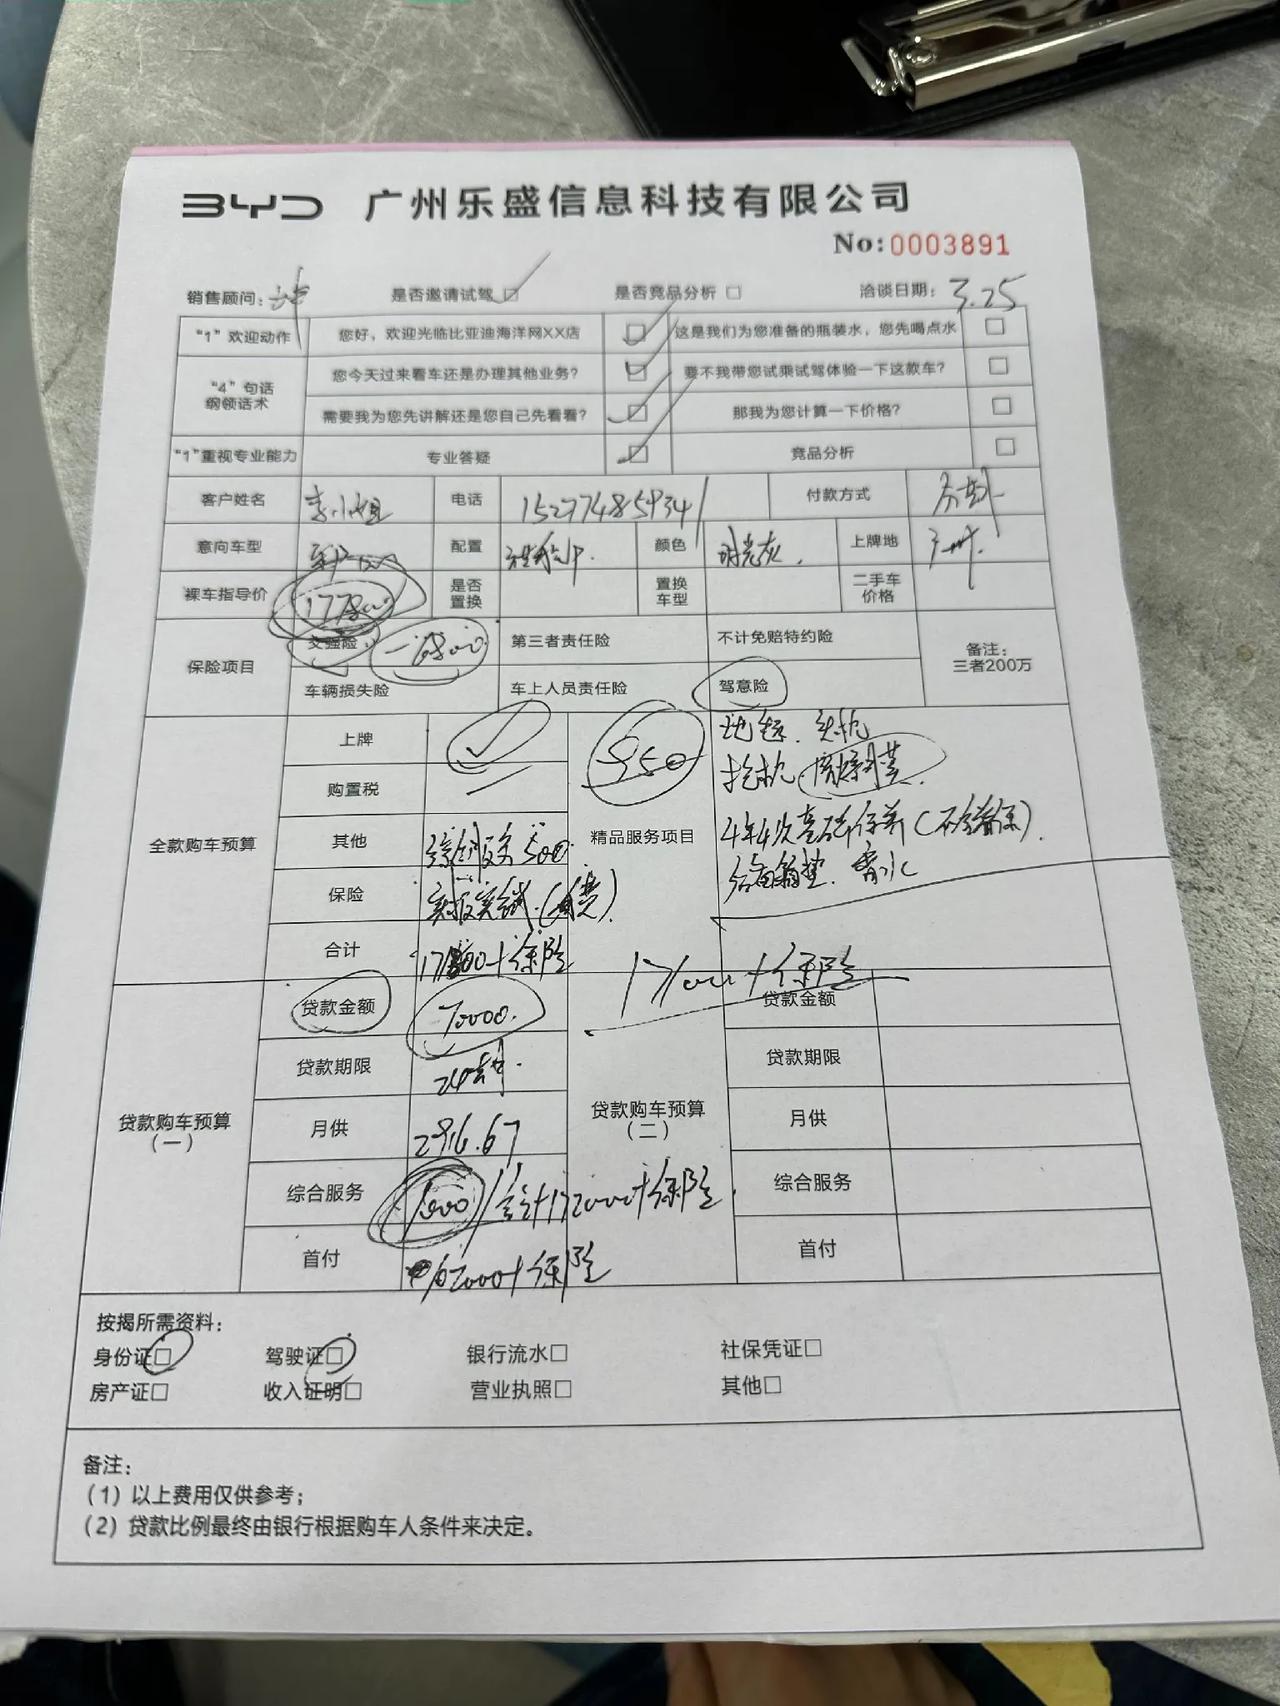 BYD 广州乐盛信息科技有限公司
No:0003891
销售顾问: 是否邀请试驾□ 是否竞品分析□ 洽谈日期: 3.25
“1”欢迎动作 您好，欢迎光临比亚迪海洋网XX店 □ 这是我们为您准备的瓶装水，您先喝点水 □
“4”句话
纲领话术
您今天过来看车还是办理其他业务? □ 要不我带您试乘试驾体验一下这款车? □
需要我为您先讲解还是您自己先看看? □ 那我为您计算一下价格? □
“1”重视专业能力 专业答疑 □ 竞品分析 □
客户姓名 李小姐 电话 15277485934 付款方式
意向车型 配置 颜色 上牌地 广州.
裸车指导价 177800 是否
置换
置换
车型
二手车
价格
保险项目 交强险 第三者责任险 不计免赔特约险 备注:
三者200万
车辆损失险 车上人员责任险 驾意险
全款购车预算 上牌
购置税
其他 500
保险
合计 +保险
精品服务项目
4年4次基础保养
171000+保险
贷款购车预算
(一)
贷款金额 70000.
贷款期限
月供 2916.67
综合服务 1000 合计172000+保险.
首付 +保险
贷款购车预算
(二)
贷款金额
贷款期限
月供
综合服务
首付
按揭所需资料:
身份证□ 驾驶证□ 银行流水□ 社保凭证□
房产证□ 收入证明□ 营业执照□ 其他□
备注:
(1) 以上费用仅供参考;
(2) 贷款比例最终由银行根据购车人条件来决定。